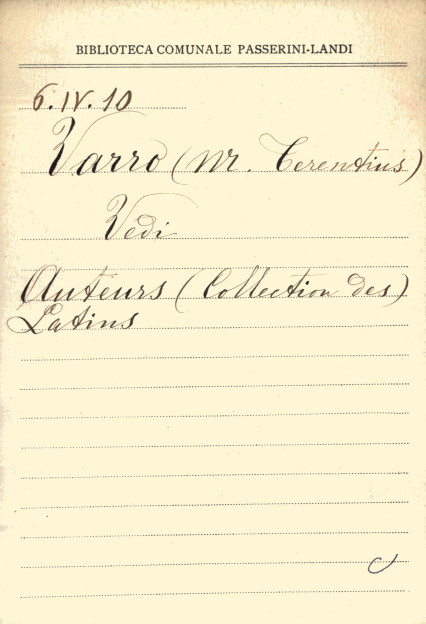 BIBLIOTECA COMUNALE PASSERINI-LANDI
6.IV.10
Varro (M. Terentius)
Vedi
Auteurs (Collection des)
Latins